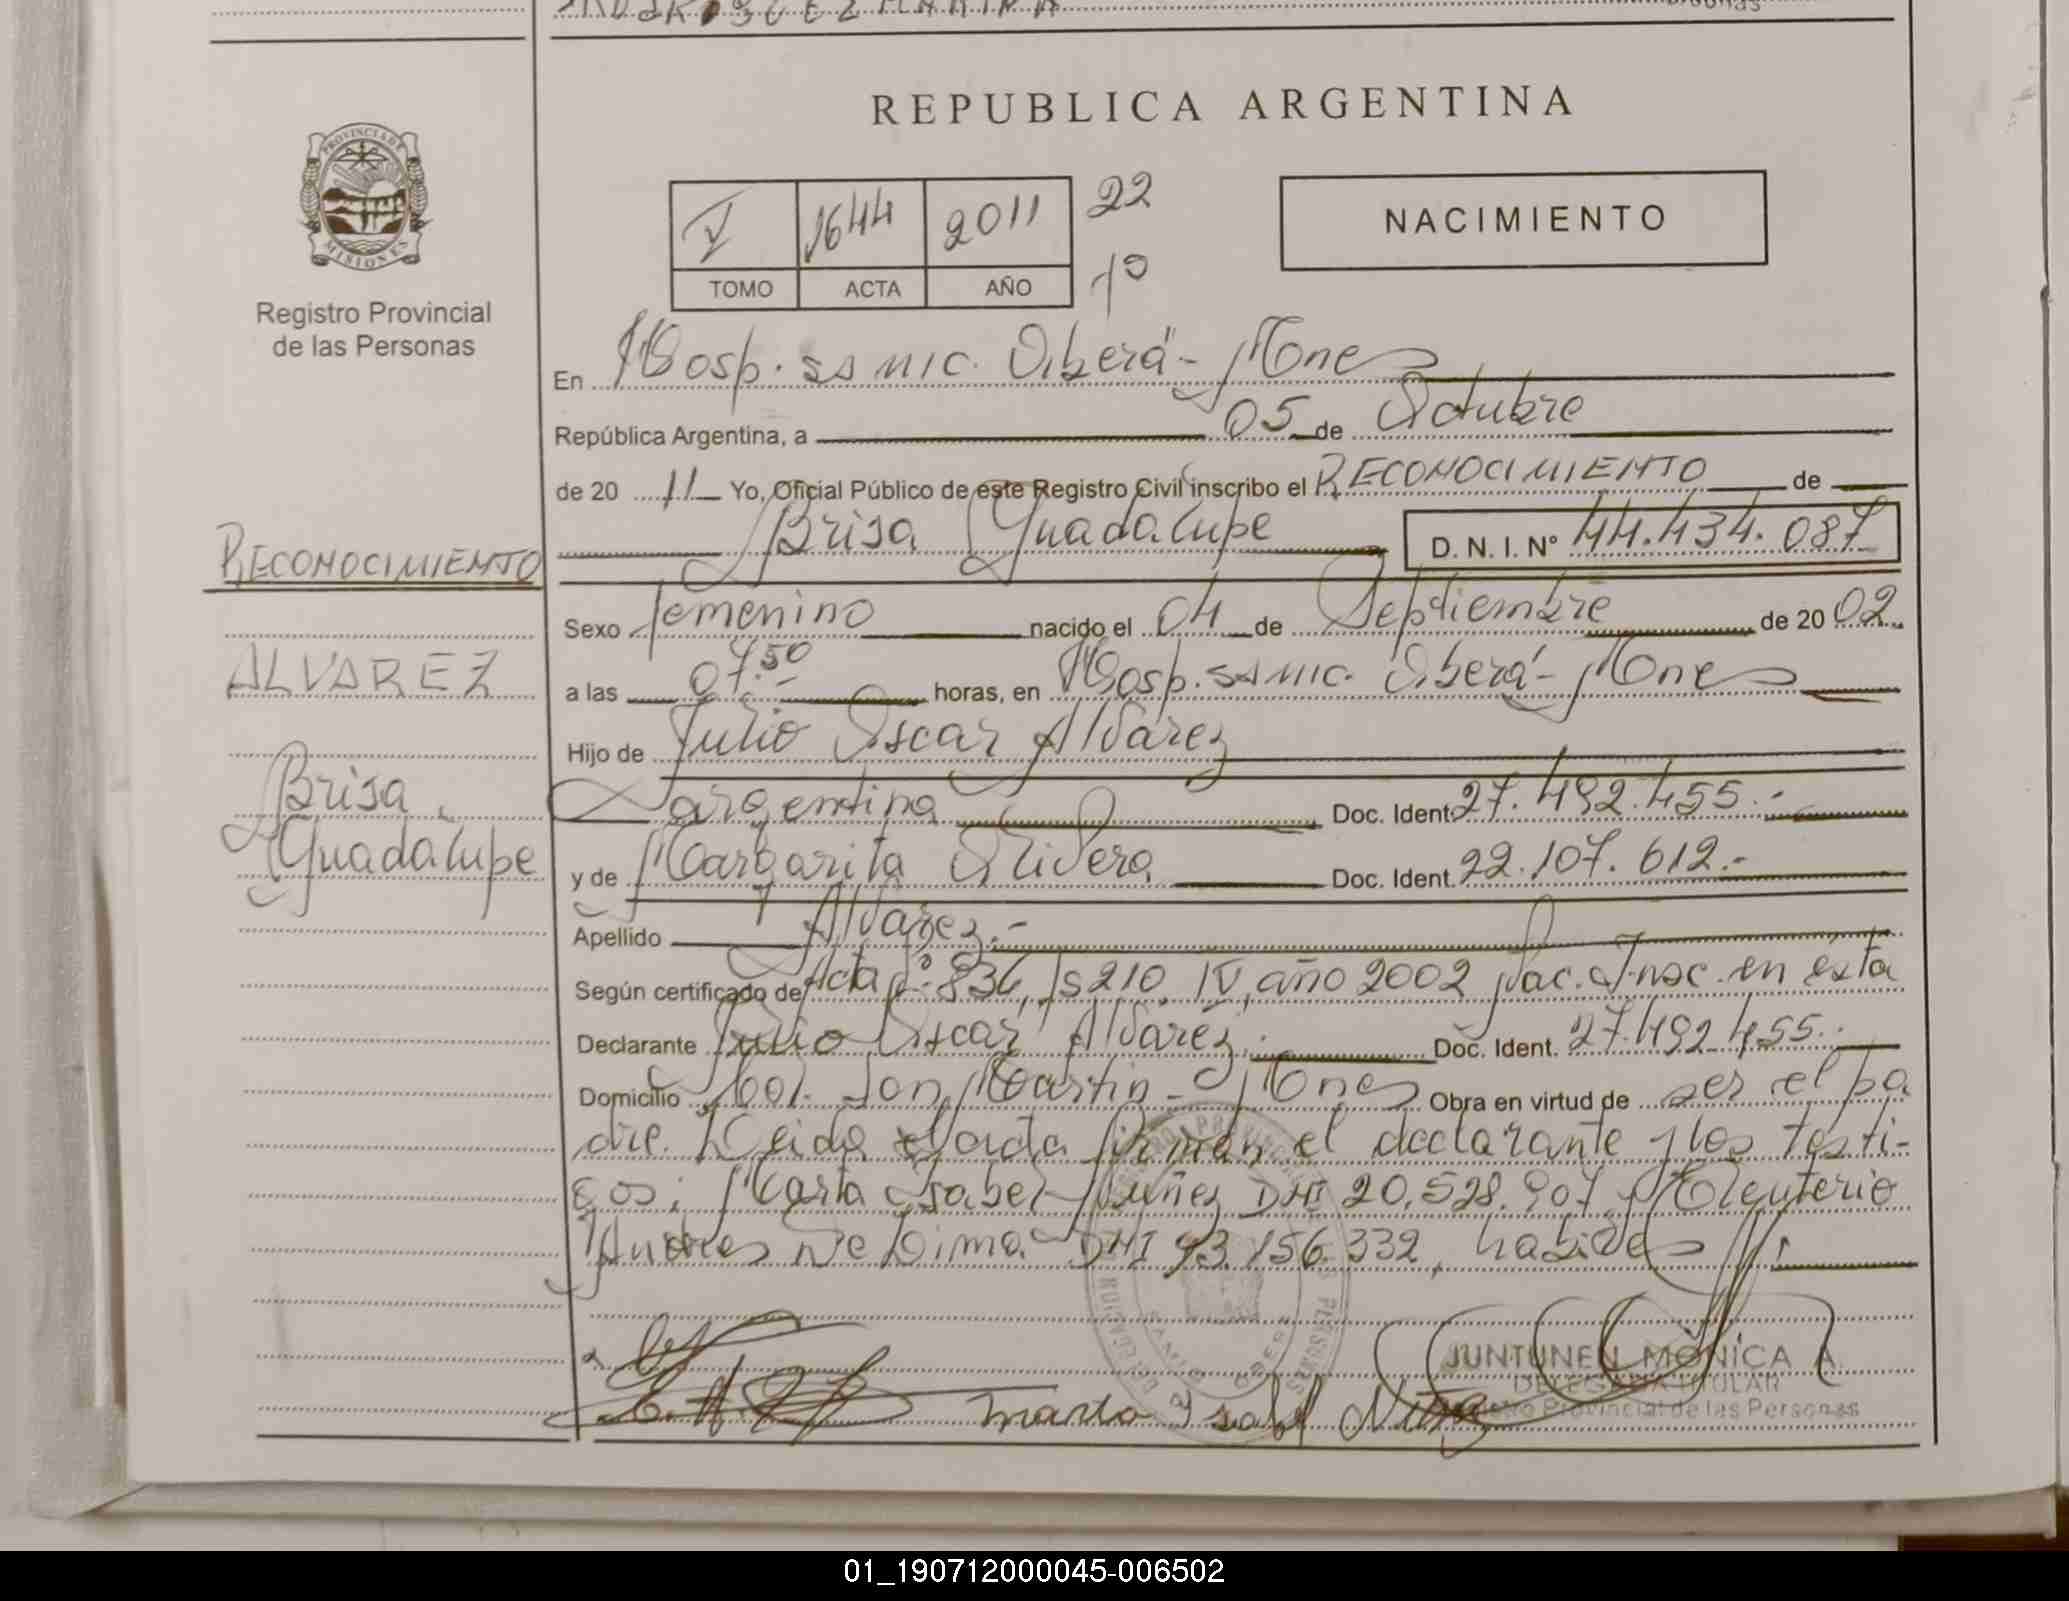 REPUBLICA ARGENTINA
PROVINCIA DE
MISIONES
Registro Provincial
de las Personas
V 1644 2011 22
TOMO ACTA AÑO 1º
NACIMIENTO
En Hosp. SS MIC. Oberá - Mones
República Argentina, a 05 de Octubre
de 20 11 Yo, Oficial Público de este Registro Civil inscribo el RECONOCIMIENTO de
Brisa Guadalupe D. N. I. Nº 44.434.087
RECONOCIMIENTO
Sexo femenino nacido el 04 de Septiembre de 20 02
ALVAREZ
a las 07.50 horas, en Hosp. SS MIC. Oberá - Mones
Hijo de Julio Oscar Alvarez
Brisa
Guadalupe
argentina Doc. Ident. 27.492.455.-
y de Margarita Olivera Doc. Ident. 22.107.612.-
Apellido Alvarez.-
Según certificado de Acta Nº 836, fs 210, IV, año 2002 Nac. Insc. en esta
Declarante Julio Oscar Alvarez. Doc. Ident. 27.492.455.
Domicilio San Martin - Mones Obra en virtud de ser el pa
dre. Leida el Acta firman el declarante y los testi-
gos: Marta Isabel Nuñez DNI 20.528.907 y Eleuterio
Andres DNI 93.156.332, habiles
JUNTUNEN MONICA A.
DELEGADA TITULAR
Registro Provincial de las Personas
Marta Isabel Nuñez
01_190712000045-006502